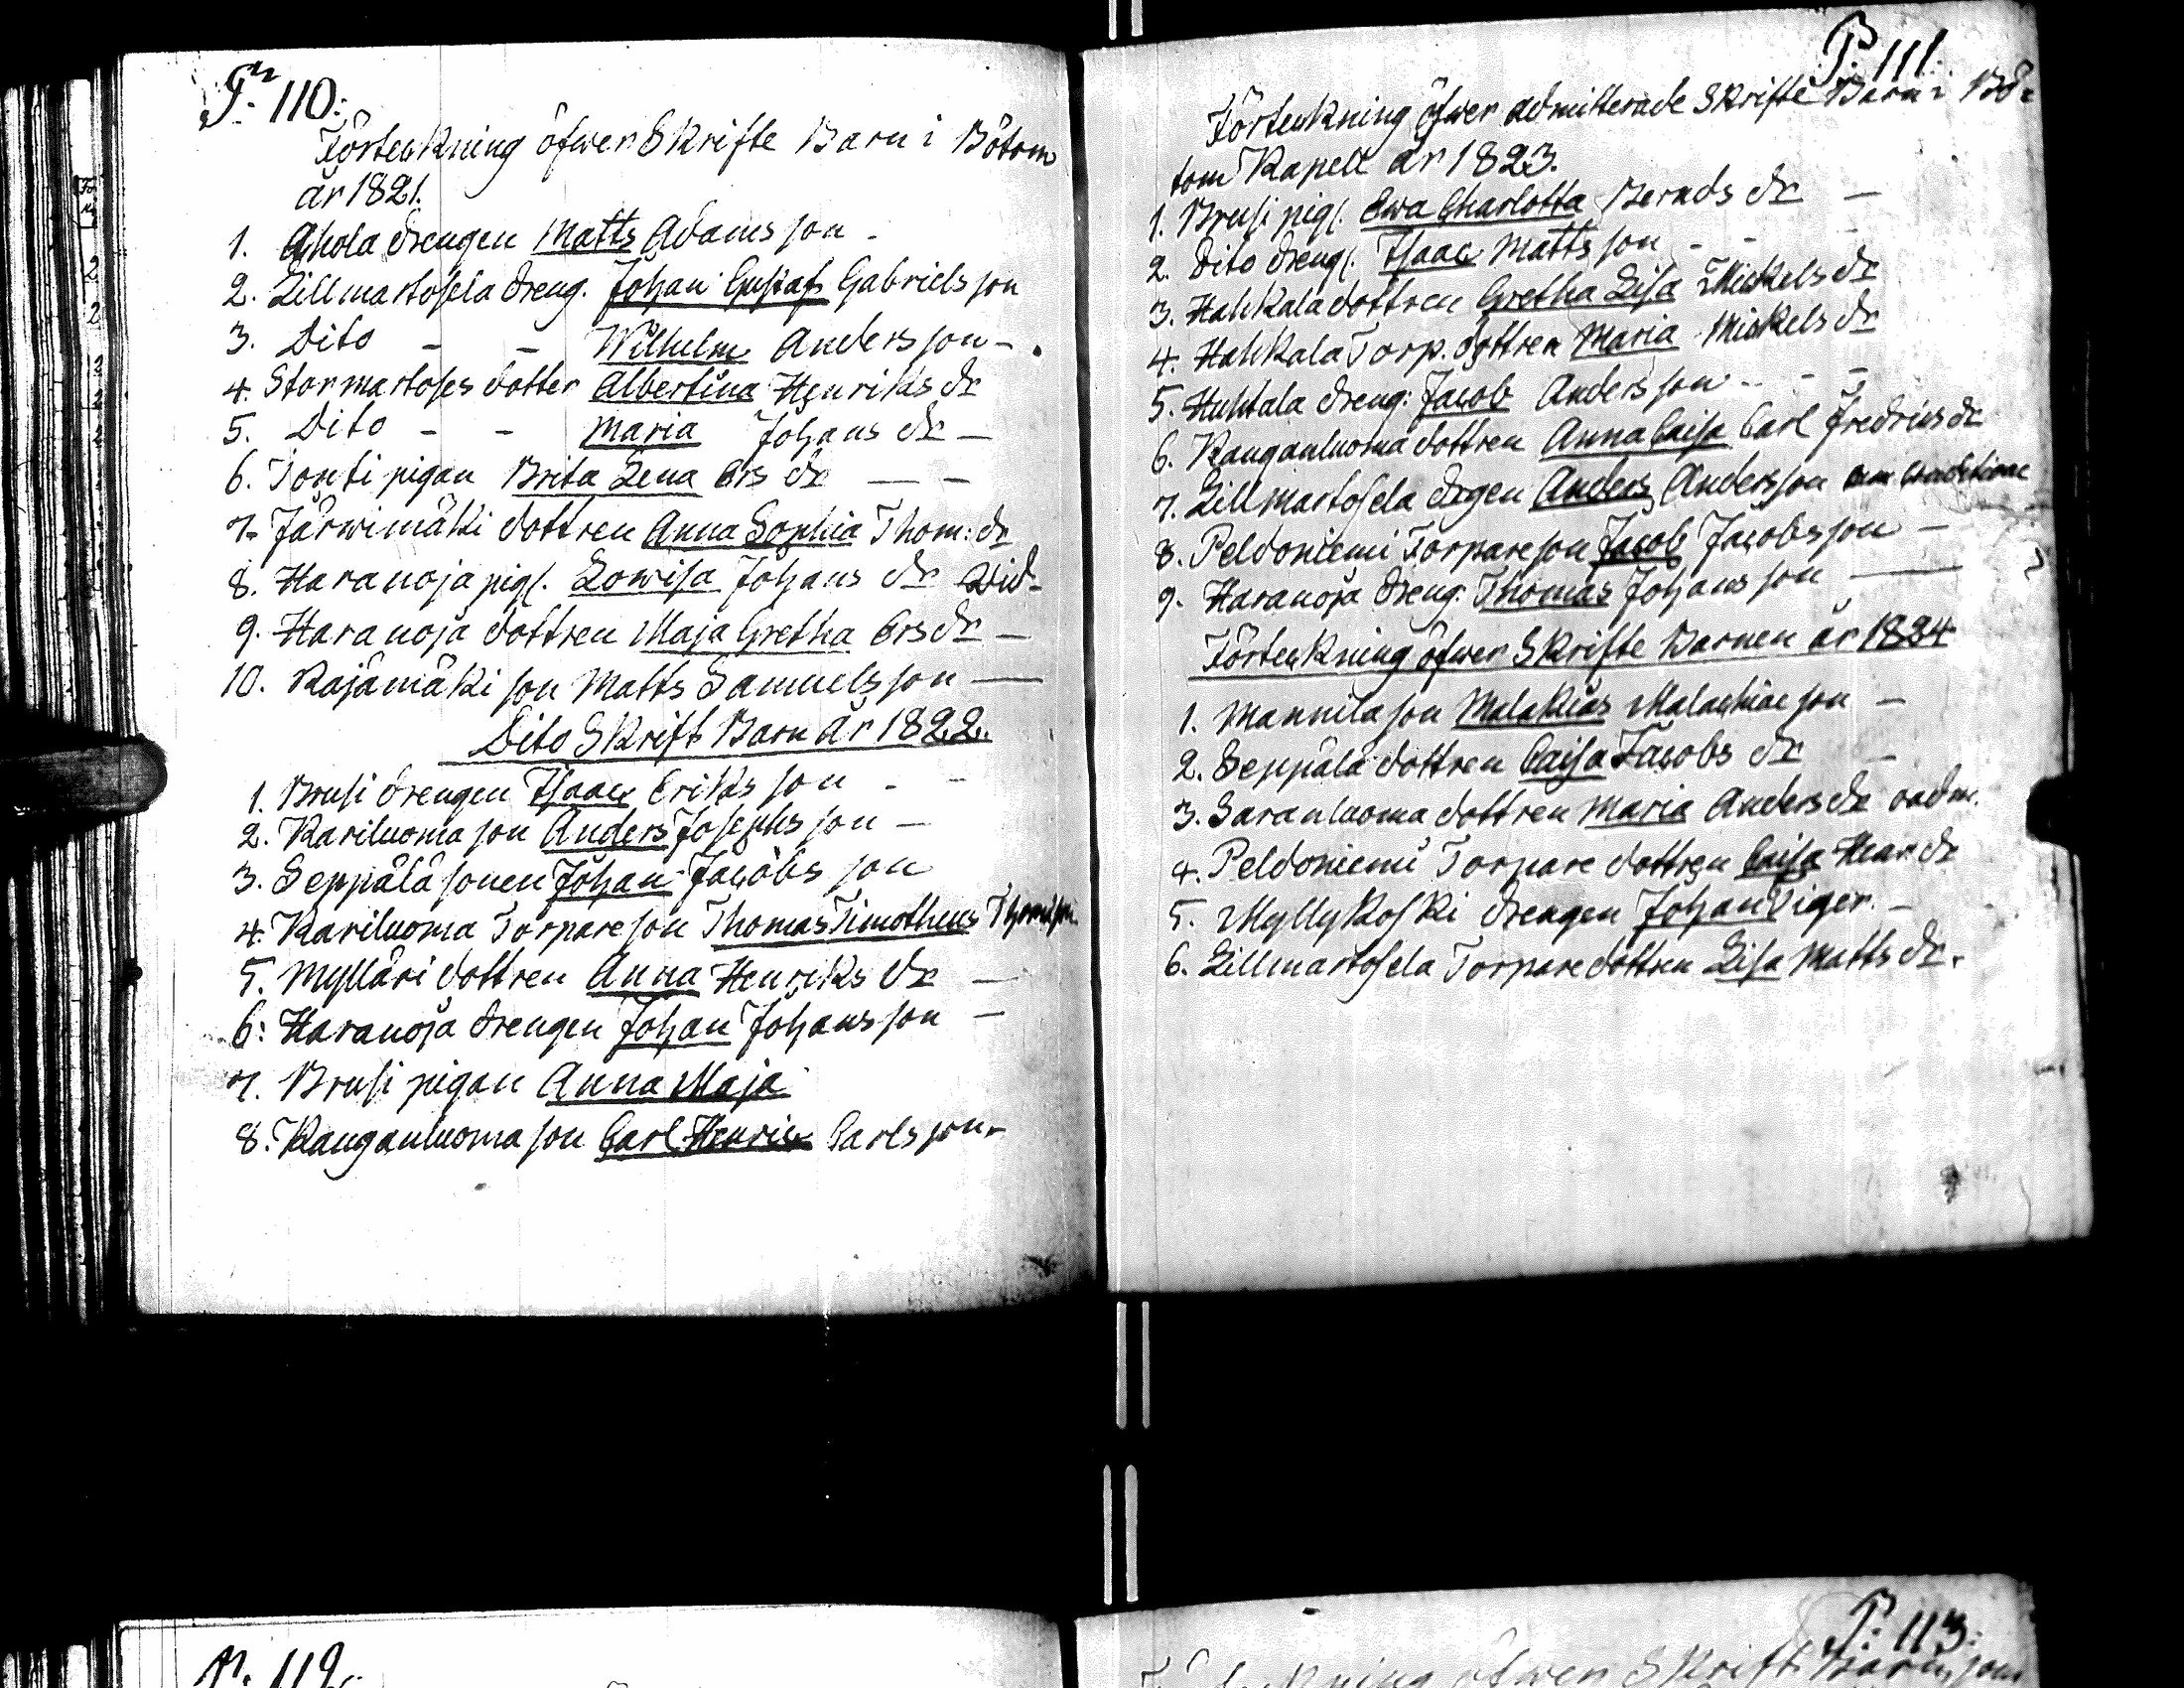 P: 110:
Förtekning öfwer Skrifte Barn i Bötom
år 1821.
1. Ahola drengen Matts Adams son -
2. Lillmartosela dreng. Johan Gustaf Gabriels son
3. Dito - - Wilhelm Anders son -
4. Stormartoses dotter Albertina Henriks dr
5. Dito - - Maria Johans dr -
6. Tonti pigan Brita Lena Ers dr - -
7. Järwimäki dottren Anna Sophia Thom: dr
8. Haranoja pig. Lowisa Johans dr
9. Haranoja dottren Maja Gretha Ers dr -
10. Rajamäki son Matts Samuels son -
Dito Skrift Barn år 1822.
1. Brusi drengen Isaac Eriks son - -
2. Kariluoma son Anders Josephs son -
3. Seppälä sonen Johan Jacobs son
4. Kariluoma Torpare son Thomas Timotheus
5. Mylläri dottren Anna Henriks dr -
6: Haranoja drengen Johan Johans son -
7. Brusi pigan Anna Maja
8. Kanganluoma son Carl Henric Carls son -
P: 111.
Förtekning öfwer admitterade Skrifte Barn i Bö-
tom Kapell år 1823.
1. Brusi pig. Ewa Charlotta Bernds dr -
2. Dito dreng. Isaac Matts son - -
3. Hahkala dottren Gretha Lisa Mickels dr
4. Hahkala Torp. dottren Maria Mickels dr
5. Huhtala dreng: Jacob Anders son - - -
6. Kanganluoma dottren Anna Caisa Carl Fredrics dr
7. Lillmartosela drgen Anders Andersson
8. Peldoniemi Torpare son Jacob Jacobs son -
9. Haranoja dreng. Thomas Johans son -
Förtekning öfwer Skrifte Barnen år 1824
1. Mannila son Malakias Malachiae son -
2. Seppälä dottren Caisa Jacobs dr -
3. Saranluoma dottren Maria Anders dr oadm.
4. Peldoniemi Torpare dottren Caisa Henr. dr
5. Myllykoski drengen Johan Viger. -
6. Lillmartosela Torpare dottren Lisa Matts dr.
P: 112.
P: 113:
öfwer Skrift Barn, som